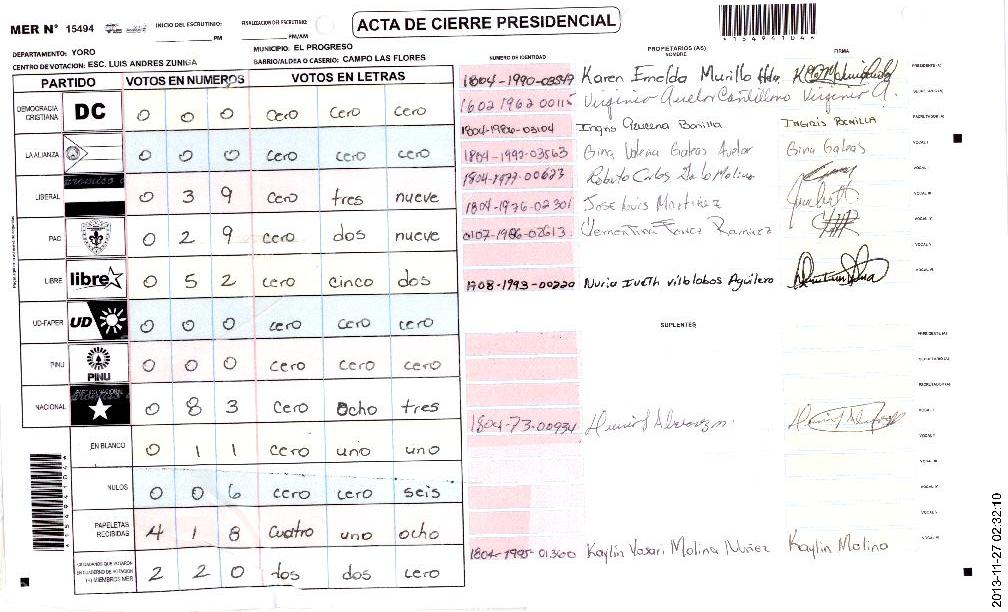 MER N° 15494 INICIO DEL ESCRUTINIO: PM FINALIZACION DEL ESCRUTINIO: PM/AM
ACTA DE CIERRE PRESIDENCIAL
*15494104*
DEPARTAMENTO: YORO MUNICIPIO: EL PROGRESO
CENTRO DE VOTACION: ESC. LUIS ANDRES ZUNIGA BARRIO/ALDEA O CASERIO: CAMPO LAS FLORES
PARTIDO VOTOS EN NUMEROS VOTOS EN LETRAS
DEMOCRACIA CRISTIANA DC 0 0 0 cero cero cero
LA ALIANZA 0 0 0 cero cero cero
LIBERAL 0 3 9 cero tres nueve
PAC 0 2 9 cero dos nueve
LIBRE libre 0 5 2 cero cinco dos
UD-FAPER UD 0 0 0 cero cero cero
PINU PINU 0 0 0 cero cero cero
NACIONAL 0 8 3 cero ocho tres
EN BLANCO 0 1 1 cero uno uno
NULOS 0 0 6 cero cero seis
PAPELETAS RECIBIDAS 4 1 8 cuatro uno ocho
CIUDADANOS QUE VOTARON EN CUADERNO DE VOTACION (+) MIEMBROS MER 2 2 0 dos dos cero
NUMERO DE IDENTIDAD PROPIETARIOS (AS) NOMBRE FIRMA
Karen Murillo PRESIDENTE (A)
1602 1962 00115 Virginia SECRETARIO (A)
1804-1986-03104 Ingris Bonilla INGRIS BONILLA ESCRUTADOR (A)
1804-1992-03563 Gina Galeas Gina Galeas VOCAL I
1804-1977-00623 Roberto Carlos Molina VOCAL
1804-1976-02301 Jose Luis Martinez VOCAL III
0107-1986-02613 Ramirez VOCAL IV
VOCAL V
1708-1993-00220 Nuria Aguilera VOCAL VI
SUPLENTES
PRESIDENTE (A)
SECRETARIO (A)
ESCRUTADOR (A)
1804-73-00934 VOCAL I
VOCAL II
VOCAL III
VOCAL IV
VOCAL V
1804-1995-01300 Kaylin Molina Nuñez Kaylin Molina VOCAL VI
2013-11-27 02:32:10